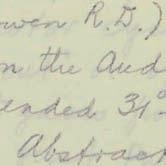 owen R.D.)
on the Aud
ended 31º
Abstrac